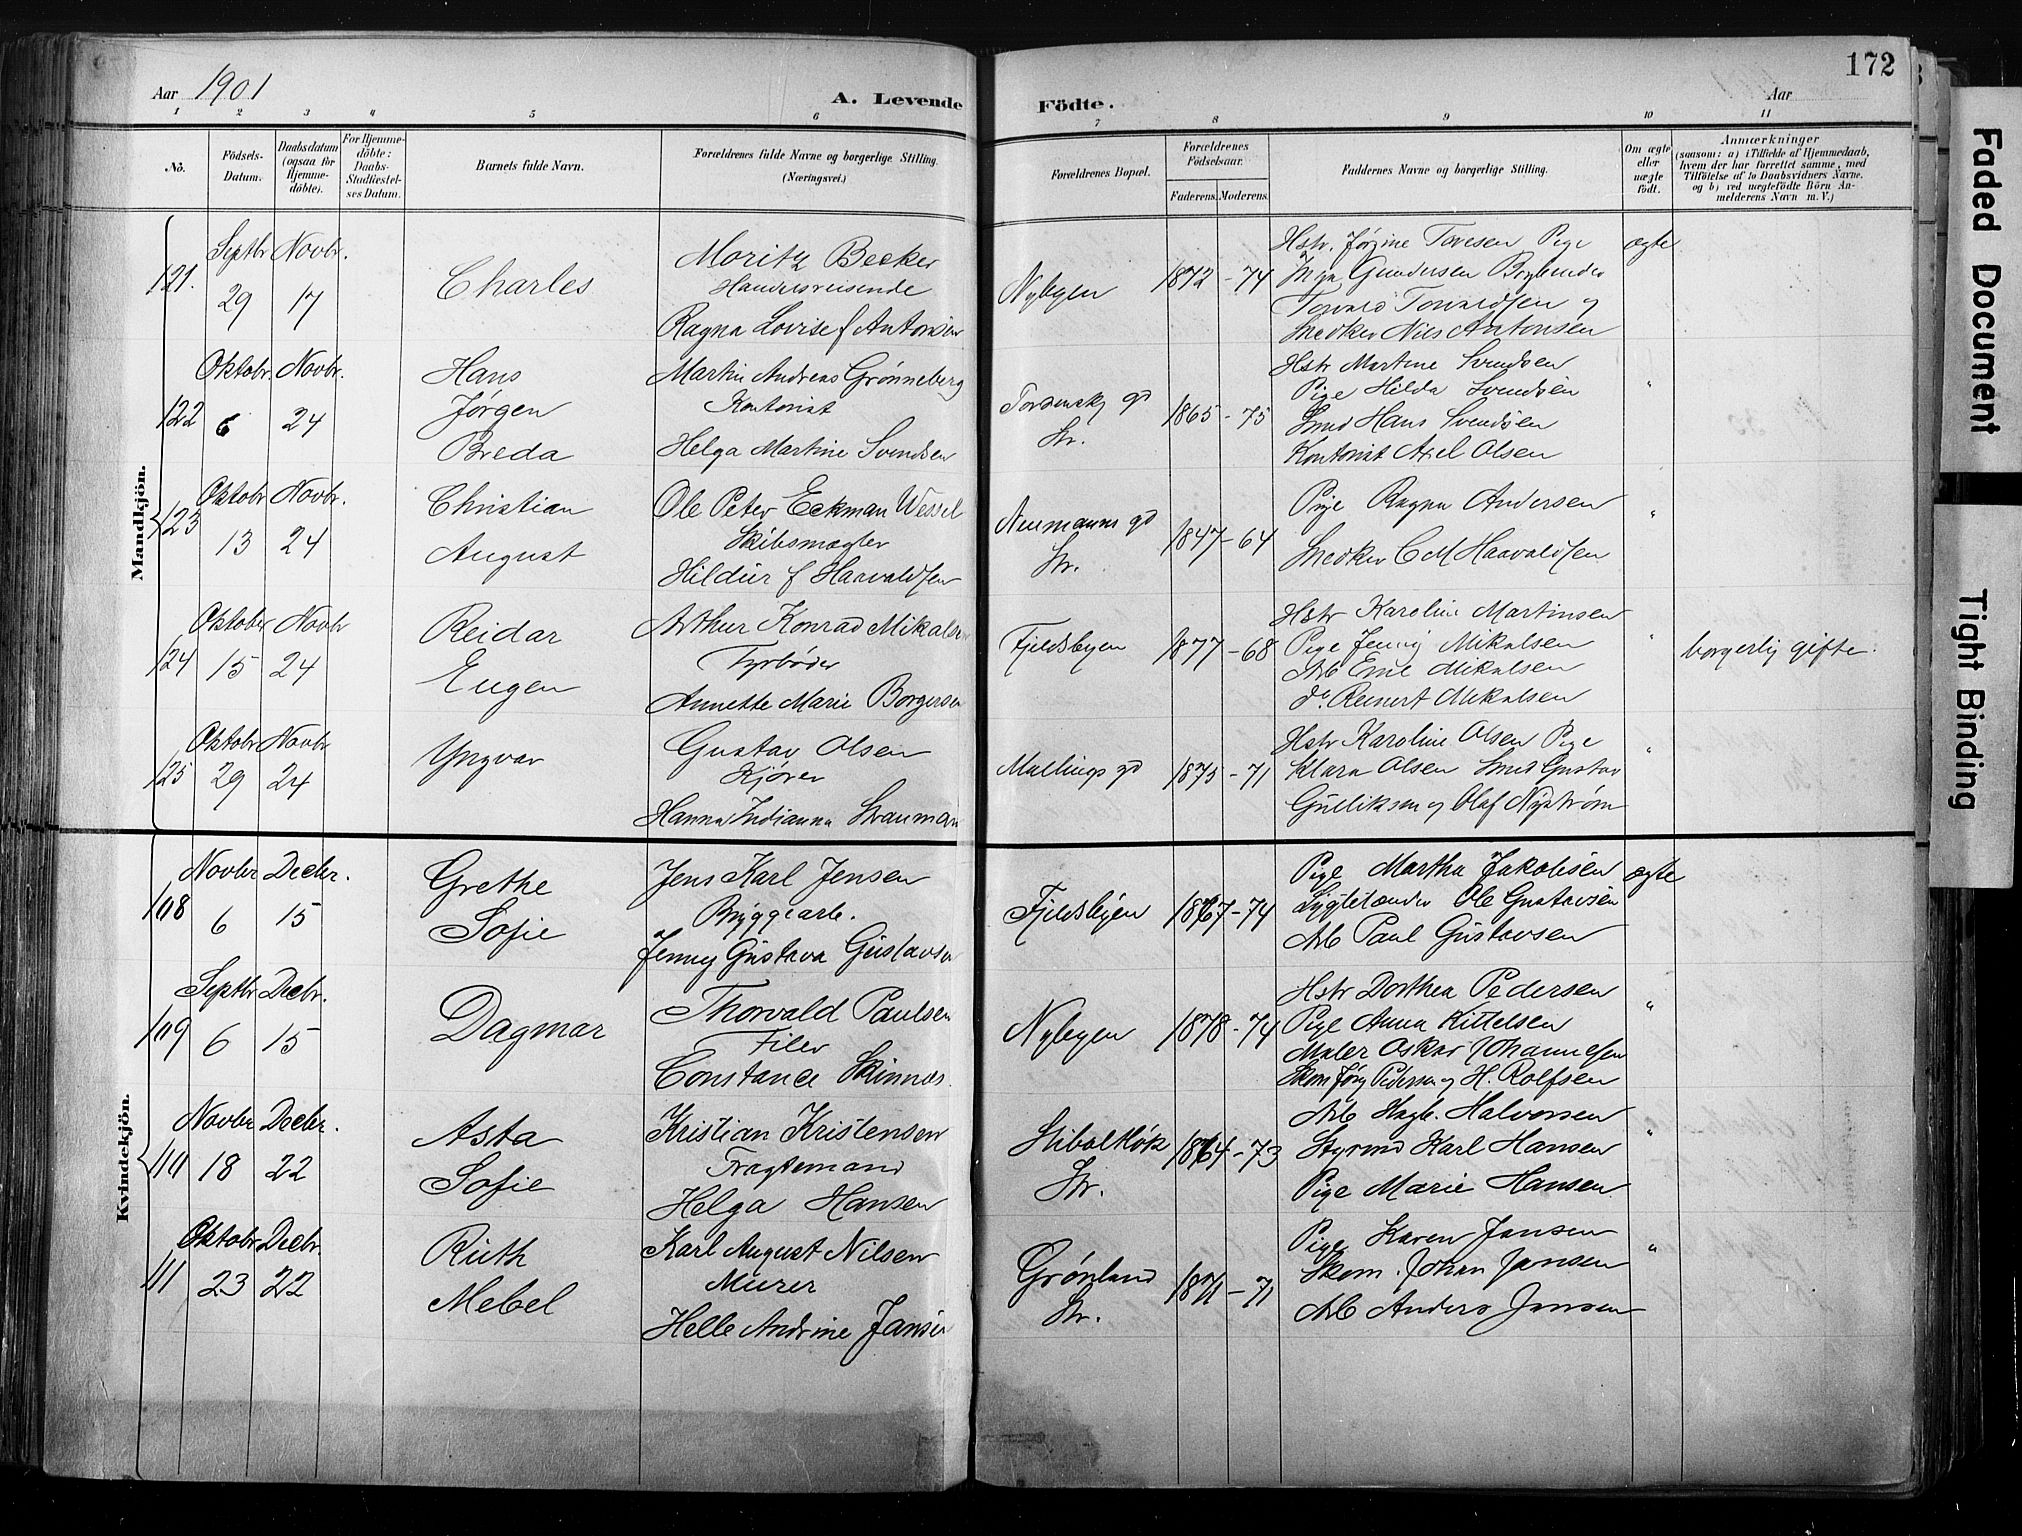 172
Aar 1901
A. Levende Födte.
Aar
1 2 3 4 5 6 7 8 9 10 11
No.
Födsels-Datum.
Daabsdatum (ogsaa for Hjemme-döbte).
For Hjemme-döbte: Daabs-Stadfæstel-ses Datum.
Barnets fulde Navn.
Forældrenes fulde Navne og borgerlige Stilling. (Næringsvei.)
Forældrenes Bopæl.
Forældrenes Födselsaar.
Faderens. Moderens.
Faddernes Navne og borgerlige Stilling.
Om ægte eller uægte födt.
Anmærkninger
(saasom: a) i Tilfælde af Hjemmedaab, hvem der har forrettet samme, med Tilföielse af to Daabsvidners Navne. og b) ved uægtefödte Börn Anmelderens Navn m. V.)
Mandkjön.
121. Septbr 29 Novbr. 17
Charles
Moritz Becker
Handelsreisende
Ragna Lovise f Antonsen
Nybyen
1872 - 74
Hstr. Jørgine Toresen Pige
Gundersen
og
Snedker Nils Antonsen
ægte
122 Oktobr. 6 Novbr. 24
Hans
Jørgen
Breda
Martin Andreas Grønneberg
Kontorist
Helga Martine Svendsen
Tordensky gd
Str.
1865 - 75
Hstr Martine Svendsen
Pige Hilda Svendsen
Smed Hans Svendsen
Kontorist Axel Olsen
"
123 Oktobr 13 Novbr. 24
Christian
August
Ole Peter Eckman Wessel
Skibsmægler
Hildur f Haavaldsen
Neumanns gd
Str.
1847 - 64
Pige Ragna Andersen
Snedker C M Haavaldsen
"
124 Oktober 15 Novbr 24
Reidar
Eugen
Arthur Konrad Mikalsen
Fyrbøder
Annette Marie Borgersen
Fjeldsbyen
1877 - 68
Hstr Karoline Martinsen
Pige Jenny Mikalsen
Arb Emil Mikalsen
do Reinert Mikalsen
"
borgerlig gifte.
125 Oktobr 29 Novbr 24
Yngvar
Gustav Olsen
Kjører
Hanna Indianna Strauman
Mallings gd
1875 - 71
Hstr Karoline Olsen Pige
Klara Olsen Smed Gustav
Gulliksen og Olaf Nystrøm
"
Kvindekjön.
108 Novbr 6 Decbr. 15
Grethe
Sofie
Jens Karl Jensen
Bryggearb.
Jenny Gustava Gustavsen
Fjeldsbyen
1867 - 74
Pige Martha Jakobsen
Lygtetænder Ole Gustavsen
Arb Paul Gustavsen
ægte
109 Septbr 6 Decbr. 15
Dagmar
Thorvald Paulsen
Filer
Constance Skinnes
Nybyen
1878 - 74
Hstr Dorthea Pedersen
Pige Anna Kittelsen
Maler Oskar Johannesen
Skom Jørg Pedersen og H. Rolfsen
"
110 Novbr 18 Decbr. 22
Asta
Sofie
Kristian Kristensen
Fragtemand
Helga Hansen
Stibolthøk
Str.
1864 - 73
Arb Hagb. Halvorsen
Styrmd Karl Hansen
Pige Marie Hansen
"
111 Oktobr 23 Decbr. 22
Ruth
Mebel
Karl August Nilsen
Murer
Helle Andrine Jansen
Grønland
Str.
1871 - 71
Pige Karen Jansen
Skom. Johan Jansen
Arb Anders Jansen
"
Faded Document
Tight Binding